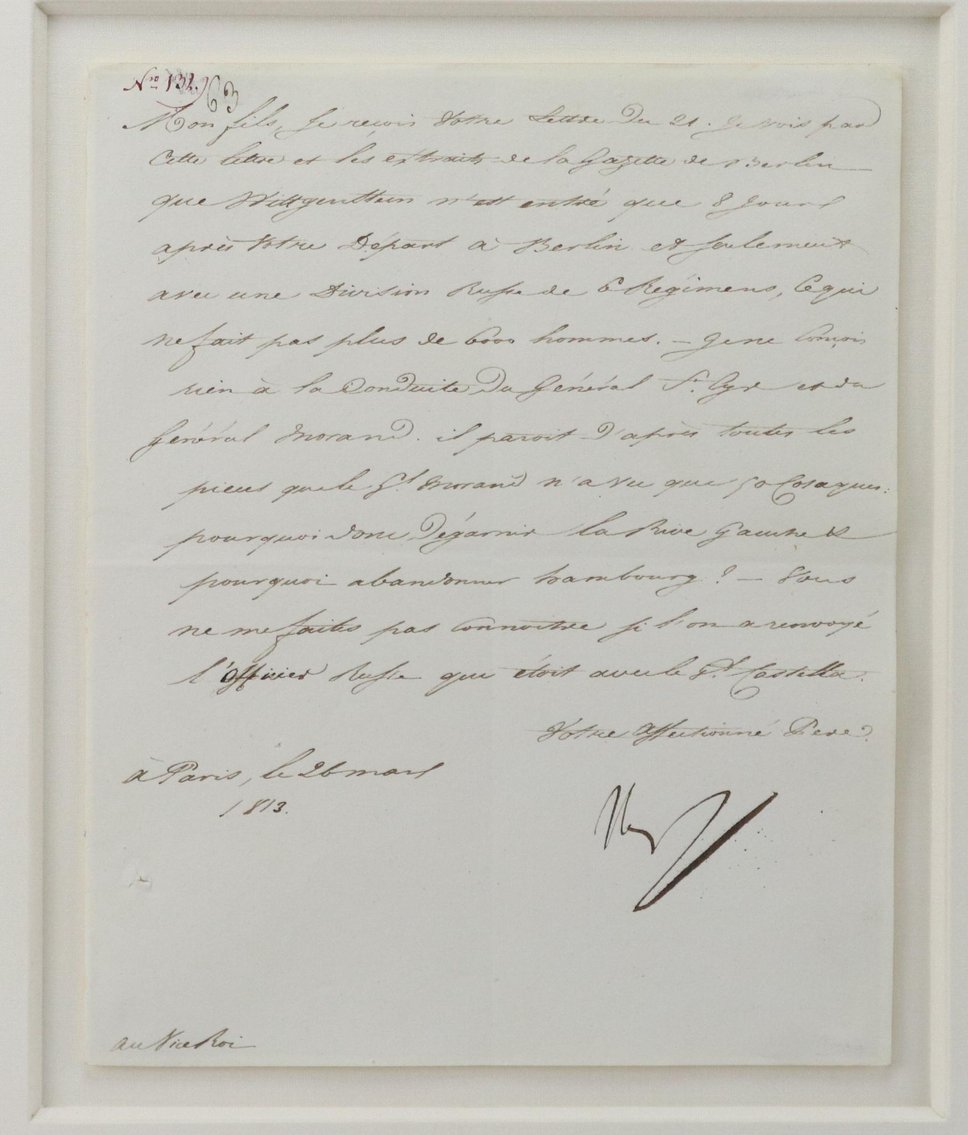 No. 132. 63
Mon fils, Je reçois Votre Lettre Du 21. Je vois par
Cette lettre et les extraits de la Gazette de Berlin
que Wittgenstein n'est entré que 8 Jours
après Votre Départ à Berlin et seulement
avec une Division Russe de 6 Régimens, Ce qui
ne fait pas plus de 6000 hommes. — Je ne Conçois
rien à la Conduite Du Général St. Cyr et du
Général Morand. il paroit D'après toutes les
pieces que le Gl. Morand n'a vu que 50 Cosaques:
pourquoi donc Dégarnir la Rive Gauche et
pourquoi abandonner hambourg? — Vous
ne me faites pas Connoitre si l'on a renvoyé
l'officier Russe qui étoit avec le Gl. Castella.
Votre affectionné Pere.
à Paris, le 26 mars
1813.
Nap
au Vice Roi